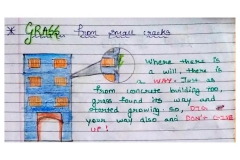 * GRASS from small cracks
Where there is
a will, there is
a WAY. Just as
from concrete building too,
grass found its way and
started growing. So, DIG
your way also and DON'T GIVE
UP!